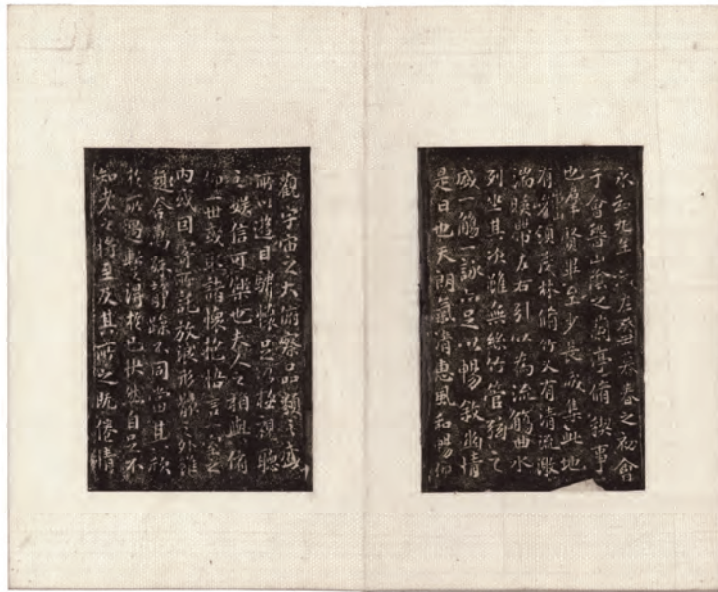 永和九年歲在癸丑暮春之初會
于會稽山陰之蘭亭脩稧事
也羣賢畢至少長咸集此地
有峻領茂林脩竹又有清流激
湍暎帶左右引以為流觴曲水
列坐其次雖無絲竹管弦之
盛一觴一詠亦足以暢敘幽情
是日也天朗氣清惠風和暢仰
觀宇宙之大俯察品類之盛
所以遊目騁懷足以極視聽
之娛信可樂也夫人之相與俯
仰一世或取諸懷抱悟言一室之
內或因寄所託放浪形骸之外雖
趣舍萬殊靜躁不同當其欣
於所遇暫得於己快然自足不
知老之將至及其所之既倦情